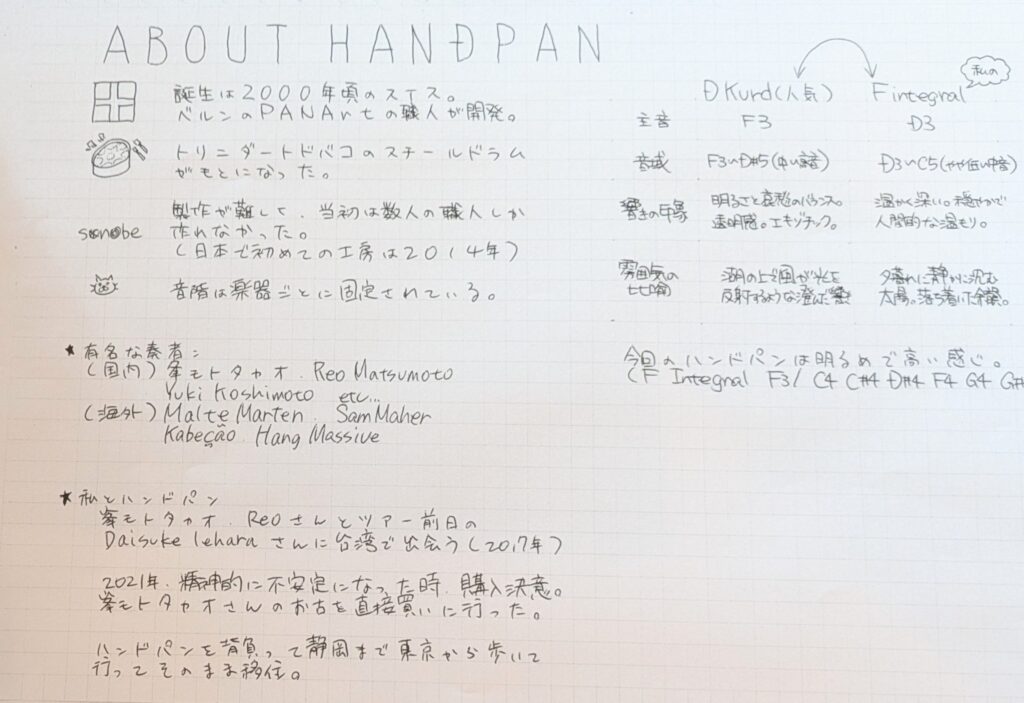 ABOUT HANDPAN
誕生は2000年頃のスイス。
ベルンのPANArtの職人が開発。
トリニダードトバコのスチールドラム
がもとになった。
製作が難しく、当初は数人の職人しか
作れなかった。
sonobe
(日本で初めての工房は2014年)
音階は楽器ごとに固定されている。
★有名な奏者:
(国内)峯モトタカオ. Reo Matsumoto
Yuki Koshimoto etc...
(海外)Malte Marten. Sam Maher
Kabeção. Hang Massive
★私とハンドパン
峯モトタカオ. Reoさんとツアー前日の
Daisuke Ieharaさんに台湾で出会う(2017年)
2021年.精神的に不安定になった時.購入決意。
峯モトタカオさんのお古を直接買いに行った。
ハンドパンを背負って静岡まで東京から歩いて
行ってそのまま移住。
私の
D Kurd(人気) F integral
主音 F3 D3
音域 F3〜D#5(中い高音) D3〜C5(やや低い中音)
響きの印象 明るさと哀愁のバランス。 温かく深い。穏やかで
透明感。エキゾチック。 人間的な温もり。
雰囲気の 湖の上で風が光を 夕暮れに静かに沈む
比喩 反射するような澄んだ 太陽。落ち着いた余韻。
今回のハンドパンは明るめで高い感じ。
(F Integral F3/ C4 C#4 D#4 F4 G4 G#